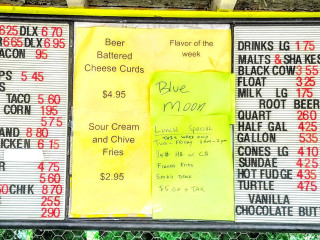 625 DLX 6 70
665 DLX 6 95
ACON 95
PS 5 45
TACO 5 60
CORN 195
575
AND 8 80
HICKEN 6 15
4 75
5 60
50 CHIK 8 70
255
290
Beer
Battered
Cheese Curds
$4.95
Sour Cream
and Chive
Fries
$2.95
Flavor of the
week
Blue
Moon
Lunch Special
Tues - Friday
French Fries
Small Drink
$5.00 + TAX
DRINKS LG 1 75
MALTS & SHAKES
BLACK COW 3 55
FLOAT 3 25
MILK LG 1 75
ROOT BEER
QUART 2 60
HALF GAL 4 25
GALLON 5 35
CONES LG 4 10
SUNDAE 4 25
HOT FUDGE 4 35
TURTLE 4 75
VANILLA
CHOCOLATE BUTT